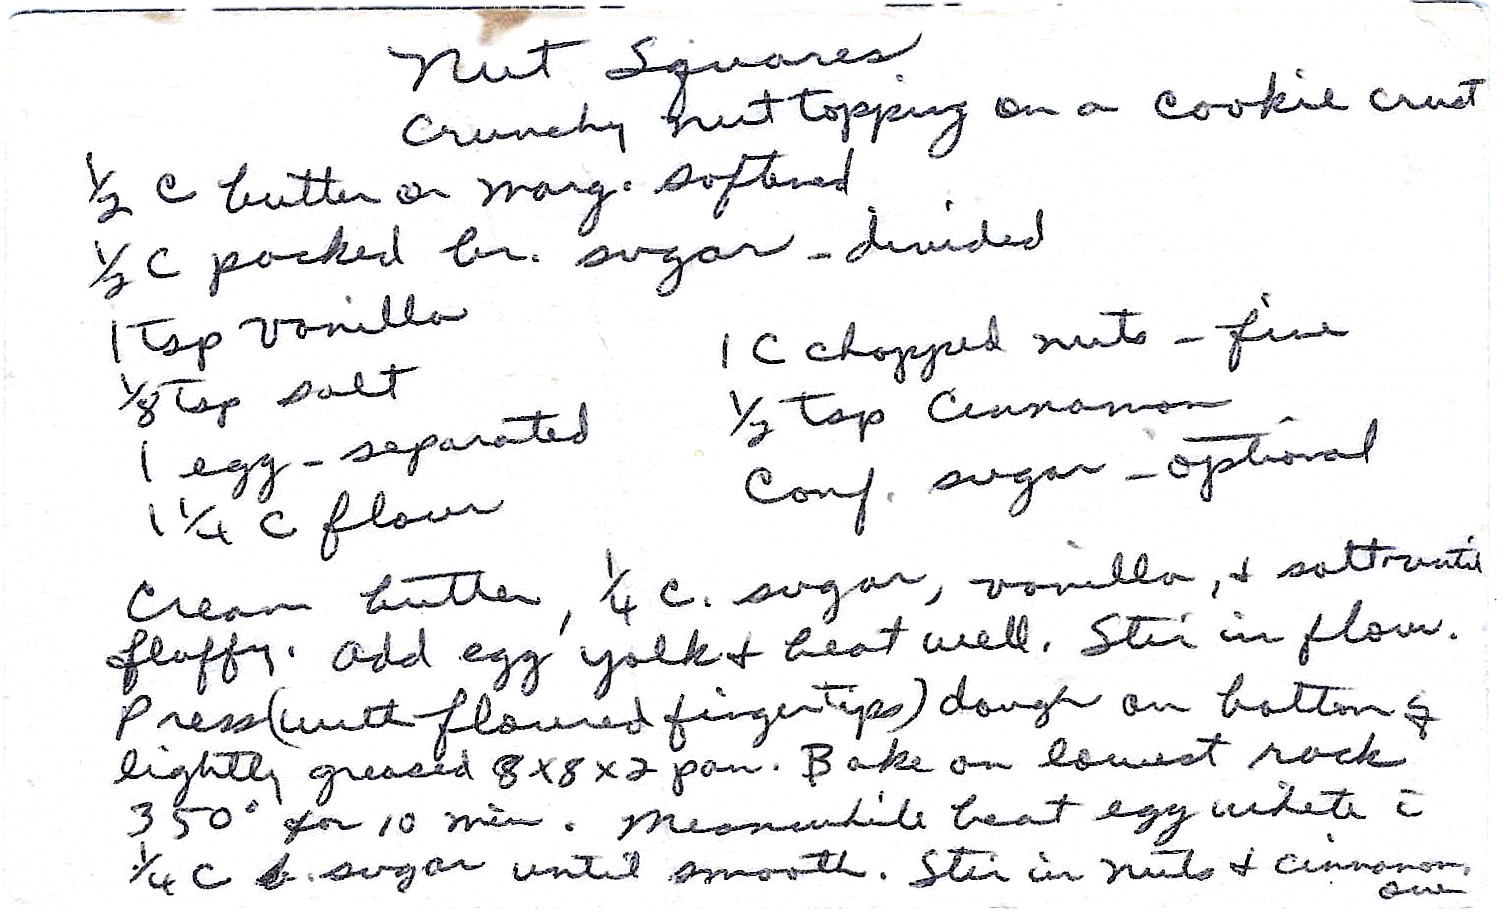 Nut Squares
Crunchy nut topping on a cookie crust
1/2 C butter or marg. softened
1/2 C packed br. sugar - divided
1 tsp vanilla
1/8 tsp salt
1 egg - separated
1 1/4 C flour
1 C chopped nuts - fine
1/2 tsp Cinnamon
Conf. sugar - optional
Cream butter, 1/4 c. sugar, vanilla, & salt until
fluffy. Add egg yolk & beat well. Stir in flour.
Press (with floured fingertips) dough on bottom of
lightly greased 8x8x2 pan. Bake on lowest rack
350° for 10 min. Meanwhile beat egg white c̄
1/4 C b. sugar until smooth. Stir in nuts & cinnamon.
over